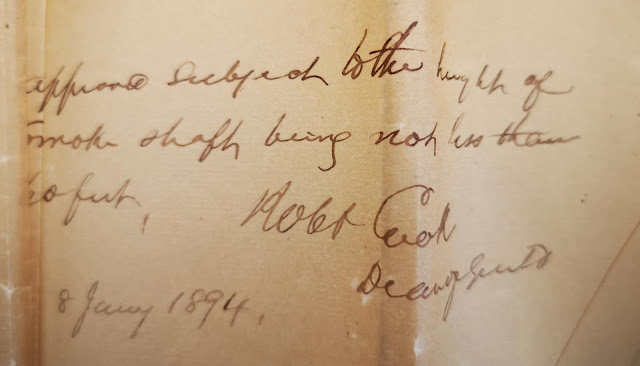 approved subject to the height of
smoke shaft being not less than
feet,
Robt Cook
Dean of Guild
8 Jany 1894.